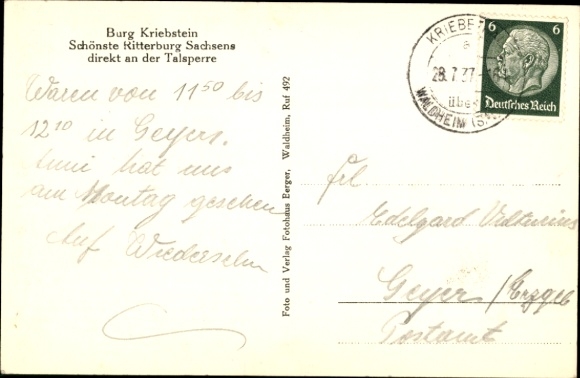 Burg Kriebstein
Schönste Ritterburg Sachsens
direkt an der Talsperre
Waren von 11 50 bis
12 10 in Geyer.
hat uns
am Montag gesehen
Auf Wiedersehn
Foto und Verlag Fotohaus Berger, Waldheim, Ruf 492
KRIEBE
28.7.37
über
WALDHEIM (SA
6 6
Deutsches Reich
Frl
Edelgard
Geyer / Erzgeb
Postamt